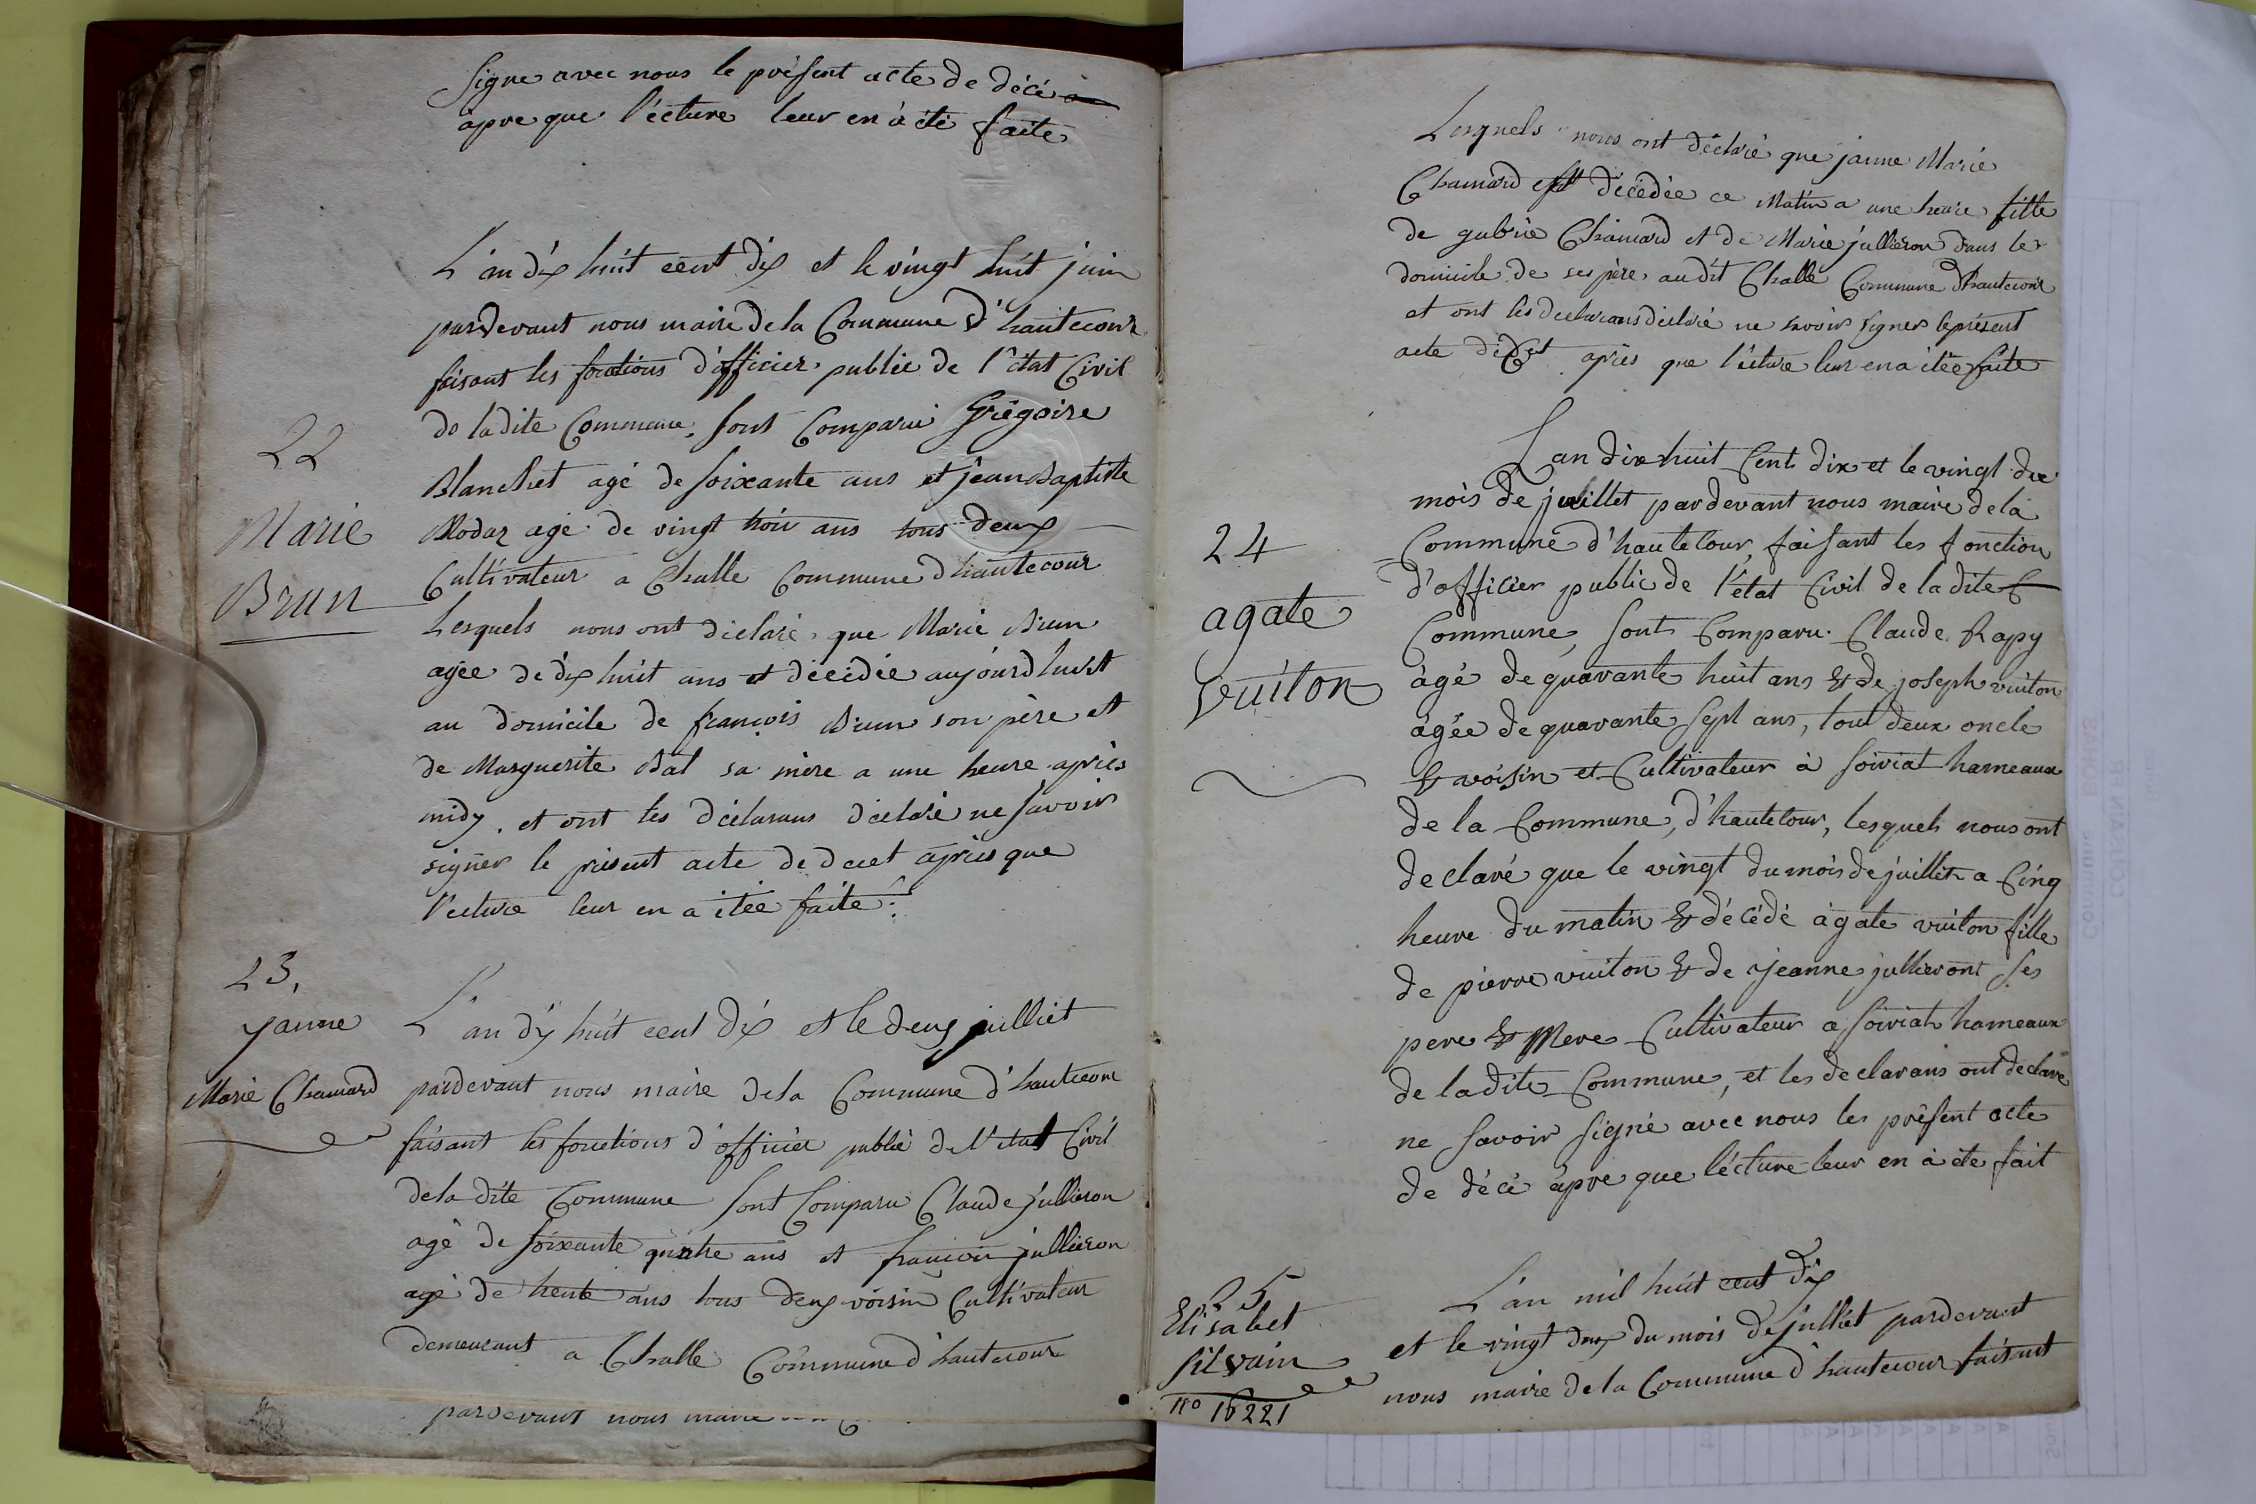 signe avec nous le présent acte de décé
àpre que l'écture leur en à été faite
L'an dix huit cent dix et le vingt huit juin
pardevant nous maire de la Commune d'hautecour
faisant les fonctions d'officier public de l'état Civil
22
de ladite Commune, sont Comparu Grégoire
Blanchet agé de soixante ans et jean Baptiste
Marie
Brun
Rodaz agé de vingt trois ans tous deux
Cultivateur a Challe Commune d'hautecour
Lesquels nous ont déclaré que Marie Brun
agée de dix huit ans et décédée aujourdhuit
au domicile de françois Brun son père et
de Marguerite Bal sa mère a une heure après
midy, et ont les déclarans déclaré ne savoir
signer le présent acte de decet après que
l'ecture leur en a étée faite.
23,
janne
Marie Chamard
L'an dix huit cent dix et le deux julliet
pardevant nous maire de la Commune d'hautecour
faisant les fonctions d'officier public de l'état Civil
de la dite Commune sont Comparu Claude jullieron
agé de soixante quatre ans et francois jullieron
agé de trente ans tous deux voisin Cultivateur
demeurant a Challe Commune d'hautecour
pardevant nous maire
Lesquels nous ont déclaré que janne Marie
Chamard est décédée ce matin a une heure fille
de gabrie Chamard et de Marie jullieron dans le
domicile de ses père audit Challe Commune d'hautecour
et ont les declarans déclaré ne savoir signer le présent
acte décet après que l'ecture leur en a étée faite
24
agate
vuiton
L'an dix huit Cent dix et le vingt du
mois de juillet pardevant nous maire de la
Commune d'hautecour, faisant les fonction
d'officier public de l'état Civil de la dite C
Commune, sont Comparu Claude Rapy
àgé de quarante huit ans & de joseph vuiton
àgée de quarante sept ans, tout deux oncle
& voisin et Cultivateur à soiriat hameaux
de la Commune, d'hautecour, lesquels nous ont
declaré que le vingt du mois de juillet a Cinq
heure du matin & décédé àgate vuiton fille
de pierre vuiton & de jeanne jullieront ses
pere & Mere Cultivateur a soiriat hameaux
de la dite Commune, et les declarans ont declaré
ne savoir signé avec nous les présent acte
de décé àpre que lécture leur en à éte fait
25
Elisabet
silvain
no 16221
L'an mil huit cent dix
et le vingt deux du mois de julliet pardevant
nous maire de la Commune d'hautecour faisant